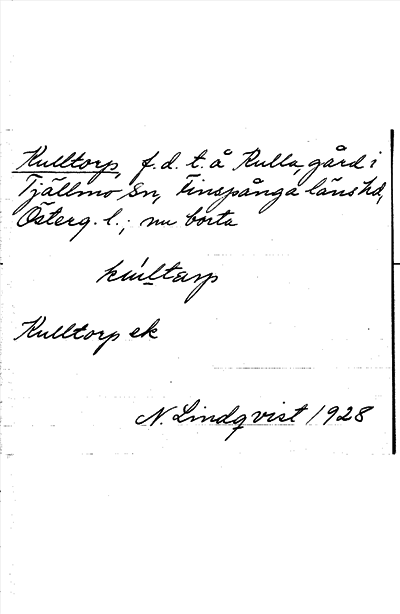 Kulltorp, f.d. t. å Rulla, gård i
Tjällmo sn, Finspånga läns hd,
Österg. l.; nu borta
Kulltorp ek
N. Lindqvist 1928